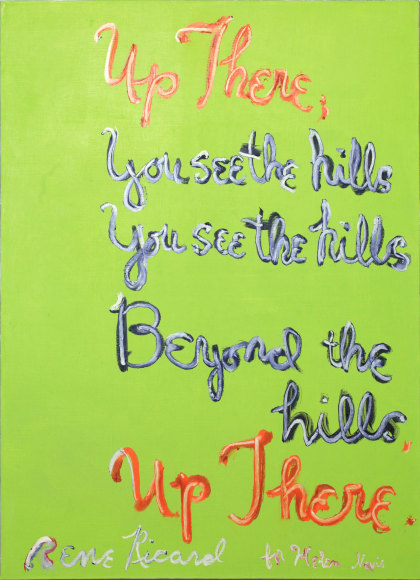 Up There,
You see the hills
You see the hills
Beyond the
hills,
Up There.
Rene Ricard for Helen